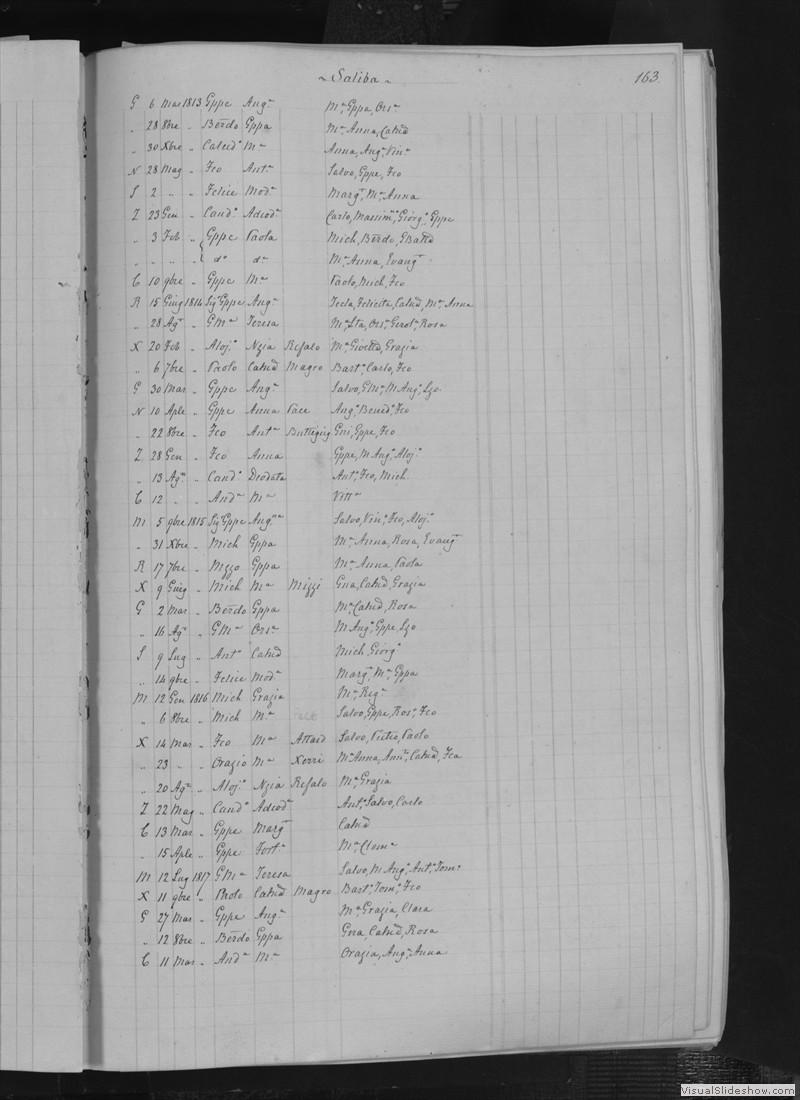 ~ Saliba ~ 163
G 6 Mar 1813 Gppe Ang.a Ma, Gppa, Ors.a
„ 28 8bre „ Berdo Gppa Ma, Anna, Catnd
„ 30 Xbre „ Calcid.o Ma Anna, Ang.a, Vin.a
N 28 Mag „ Fco Ant.a Salvo, Gppe, Fco
S 2 „ „ Felice Mod.a Marg.t, Ma, Anna
Z 23 Gen „ Cand.o Adeod.a Carlo, Massim.o, Giorg.o, Gppe
„ 3 Feb „ Gppe Paola Mich, Berdo, GBatta
„ „ „ „ d.o d.a Ma, Anna, Evang.t
C 10 9bre „ Gppe Ma Paolo, Mich, Fco
R 15 Giug 1814 Sig Gppe Ang.a Tecla, Felicita, Catnd, Ma, Anna
„ 28 Ag.o „ GMa Teresa Ma, Sta, Ors.a, Gerol.a, Rosa
X 20 Feb „ Aloj.o Nzia Refalo Ma, Grazia
„ 6 7bre „ Paolo Catnd Magro Bart.o, Carlo, Fco
G 30 Mar „ Gppe Ang.a Salvo, GMa, M Ang.o, Lzo
N 10 Aple „ Gppe Anna Pace Ang.o, Bened.o, Fco
„ 22 8bre „ Fco Ant.a Buttigieg Gni, Gppe, Fco
Z 28 Gen „ Fco Anna Gppe, M Ang.o, Aloj.o
„ 13 Ag.o „ Cand.o Deodata Ant.o, Fco, Mich
C 12 „ „ And.a Ma Vitt.a
M 5 9bre 1815 Sig Gppe Ang.na Salvo, Vin.o, Fco, Aloj.o
„ 31 Xbre „ Mich Gppa Ma, Anna, Rosa, Evang.t
R 17 7bre „ Nzzo Gppa Ma, Anna, Paola
X 9 Giug „ Mich Ma Mizzi Gna, Catnd, Grazia
G 2 Mar „ Berdo Gppa Ma, Catnd, Rosa
„ 16 Ag.o „ GMa Ors.a M Ang.o, Gppe, Lzo
S 9 Lug „ Ant.o Catnd Mich, Giorg.o
„ 14 9bre „ Felice Mod.a Marg.t, Ma, Gppa
M 12 Gen 1816 Mich Grazia Ma, Reg.a
„ 6 8bre „ Mich Ma Salvo, Gppe, Ros.o, Fco
X 14 Mar „ Fco Ma Attard Salvo, Pietro, Paolo
„ 23 „ „ Orazio Ma Xerri Ma, Anna, Catnd, Fca
„ 20 Ag.o „ Aloj.o Nzia Refalo Ma, Grazia
Z 22 Mag „ Cand.o Adeod.a Ant.o, Salvo, Carlo
C 13 Mar „ Gppe Marg.t Catnd
„ 15 Aple „ Gppe Fort.a Ma, Clem.a
M 12 Lug 1817 GMa Teresa Salvo, M Ang.o, Ant.o, Tom.o
X 11 9bre „ Paolo Catnd Magro Bart.o, Tom.o, Fco
G 27 Mar „ Gppe Ang.a Ma, Grazia, Clara
„ 12 8bre „ Berdo Gppa Gna, Catnd, Rosa
C 11 Mar „ And.a Ma Orazia, Ang.a, Anna
VisualSlideshow.com